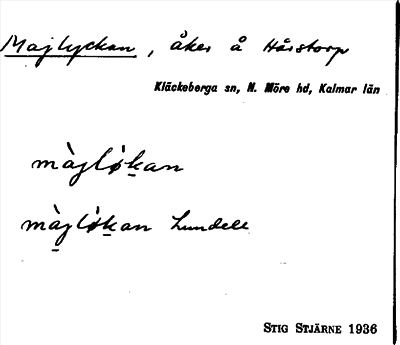 Majlyckan, åker å Hårstorp
Kläckeberga sn, N. Möre hd, Kalmar län
màjlẏḵan
mà̱jlẏḵan Lundell
STIG STJÄRNE 1936